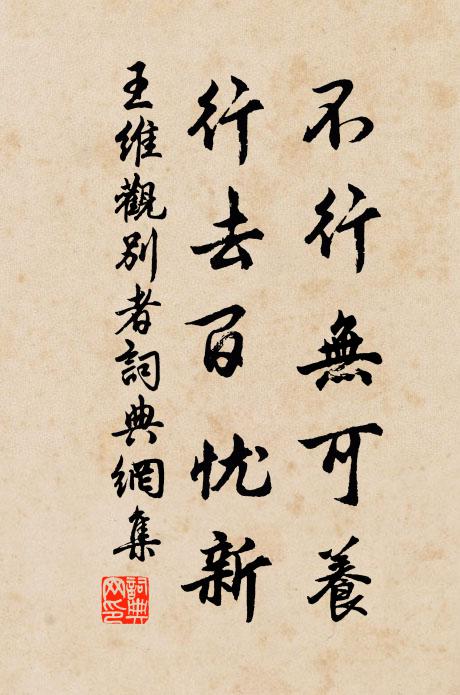 不行無可養
行去百忧新
王維觀別者詞典網集
詞典
网印